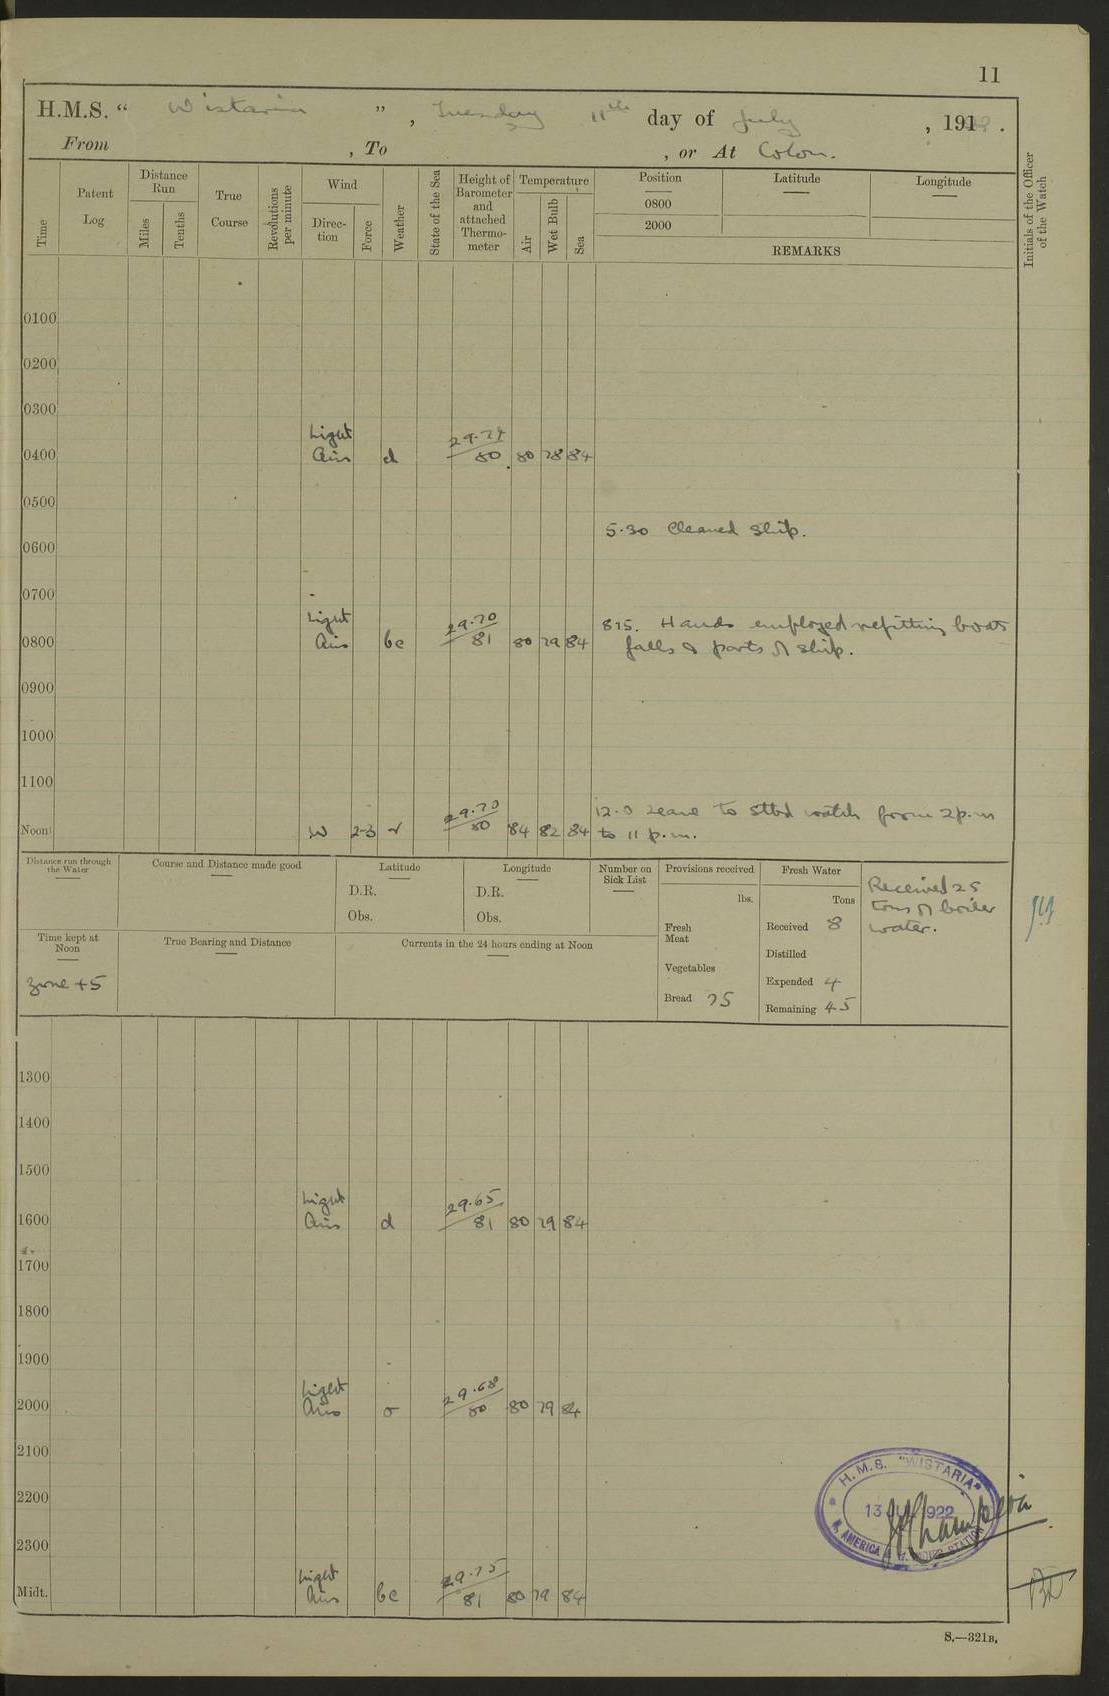 11
H.M.S. " Wistaria ", Tuesday 11th day of July, 19122.
From , To , or At Colon.
Time
Patent Log
Distance Run
Miles
Tenths
True Course
Revolutions per minute
Wind
Direc-tion
Force
Weather
State of the Sea
Height of Barometer and attached Thermo-meter
Temperature
Air
Wet Bulb
Sea
Position
0800
2000
Latitude
Longitude
REMARKS
Initials of the Officer of the Watch
0100
0200
0300
Light 29.74
0400 Airs d 80 80 78 84
0500
5.30 Cleaned Ship.
0600
0700
Light 29.70 815. Hands employed refitting boats
0800 Airs bc 81 80 79 84 falls & parts of ship.
0900
1000
1100
29.70 12.0 Leave to stbd watch from 2 p.m
Noon W 2-3 r 80 84 82 84 to 11 p.m.
Distance run through the Water
Course and Distance made good
Latitude
D.R.
Obs.
Longitude
D.R.
Obs.
Number on Sick List
Provisions received
lbs.
Fresh Meat
Vegetables
Bread 75
Fresh Water
Tons
Received 8
Distilled
Expended 4
Remaining 45
Received 25
tons of boiler
water.
Time kept at Noon
Zone +5
True Bearing and Distance
Currents in the 24 hours ending at Noon
1300
1400
1500
Light 29.65
1600 Airs d 81 80 79 84
1700
1800
1900
Light 29.68
2000 Airs o 80 80 79 84
2100
2200
2300
Light 29.75
Midt. Airs bc 81 80 79 84
H.M.S. "WISTARIA"
13 JUL 1922
N. AMERICA & W. INDIES STATION
S.—321B.